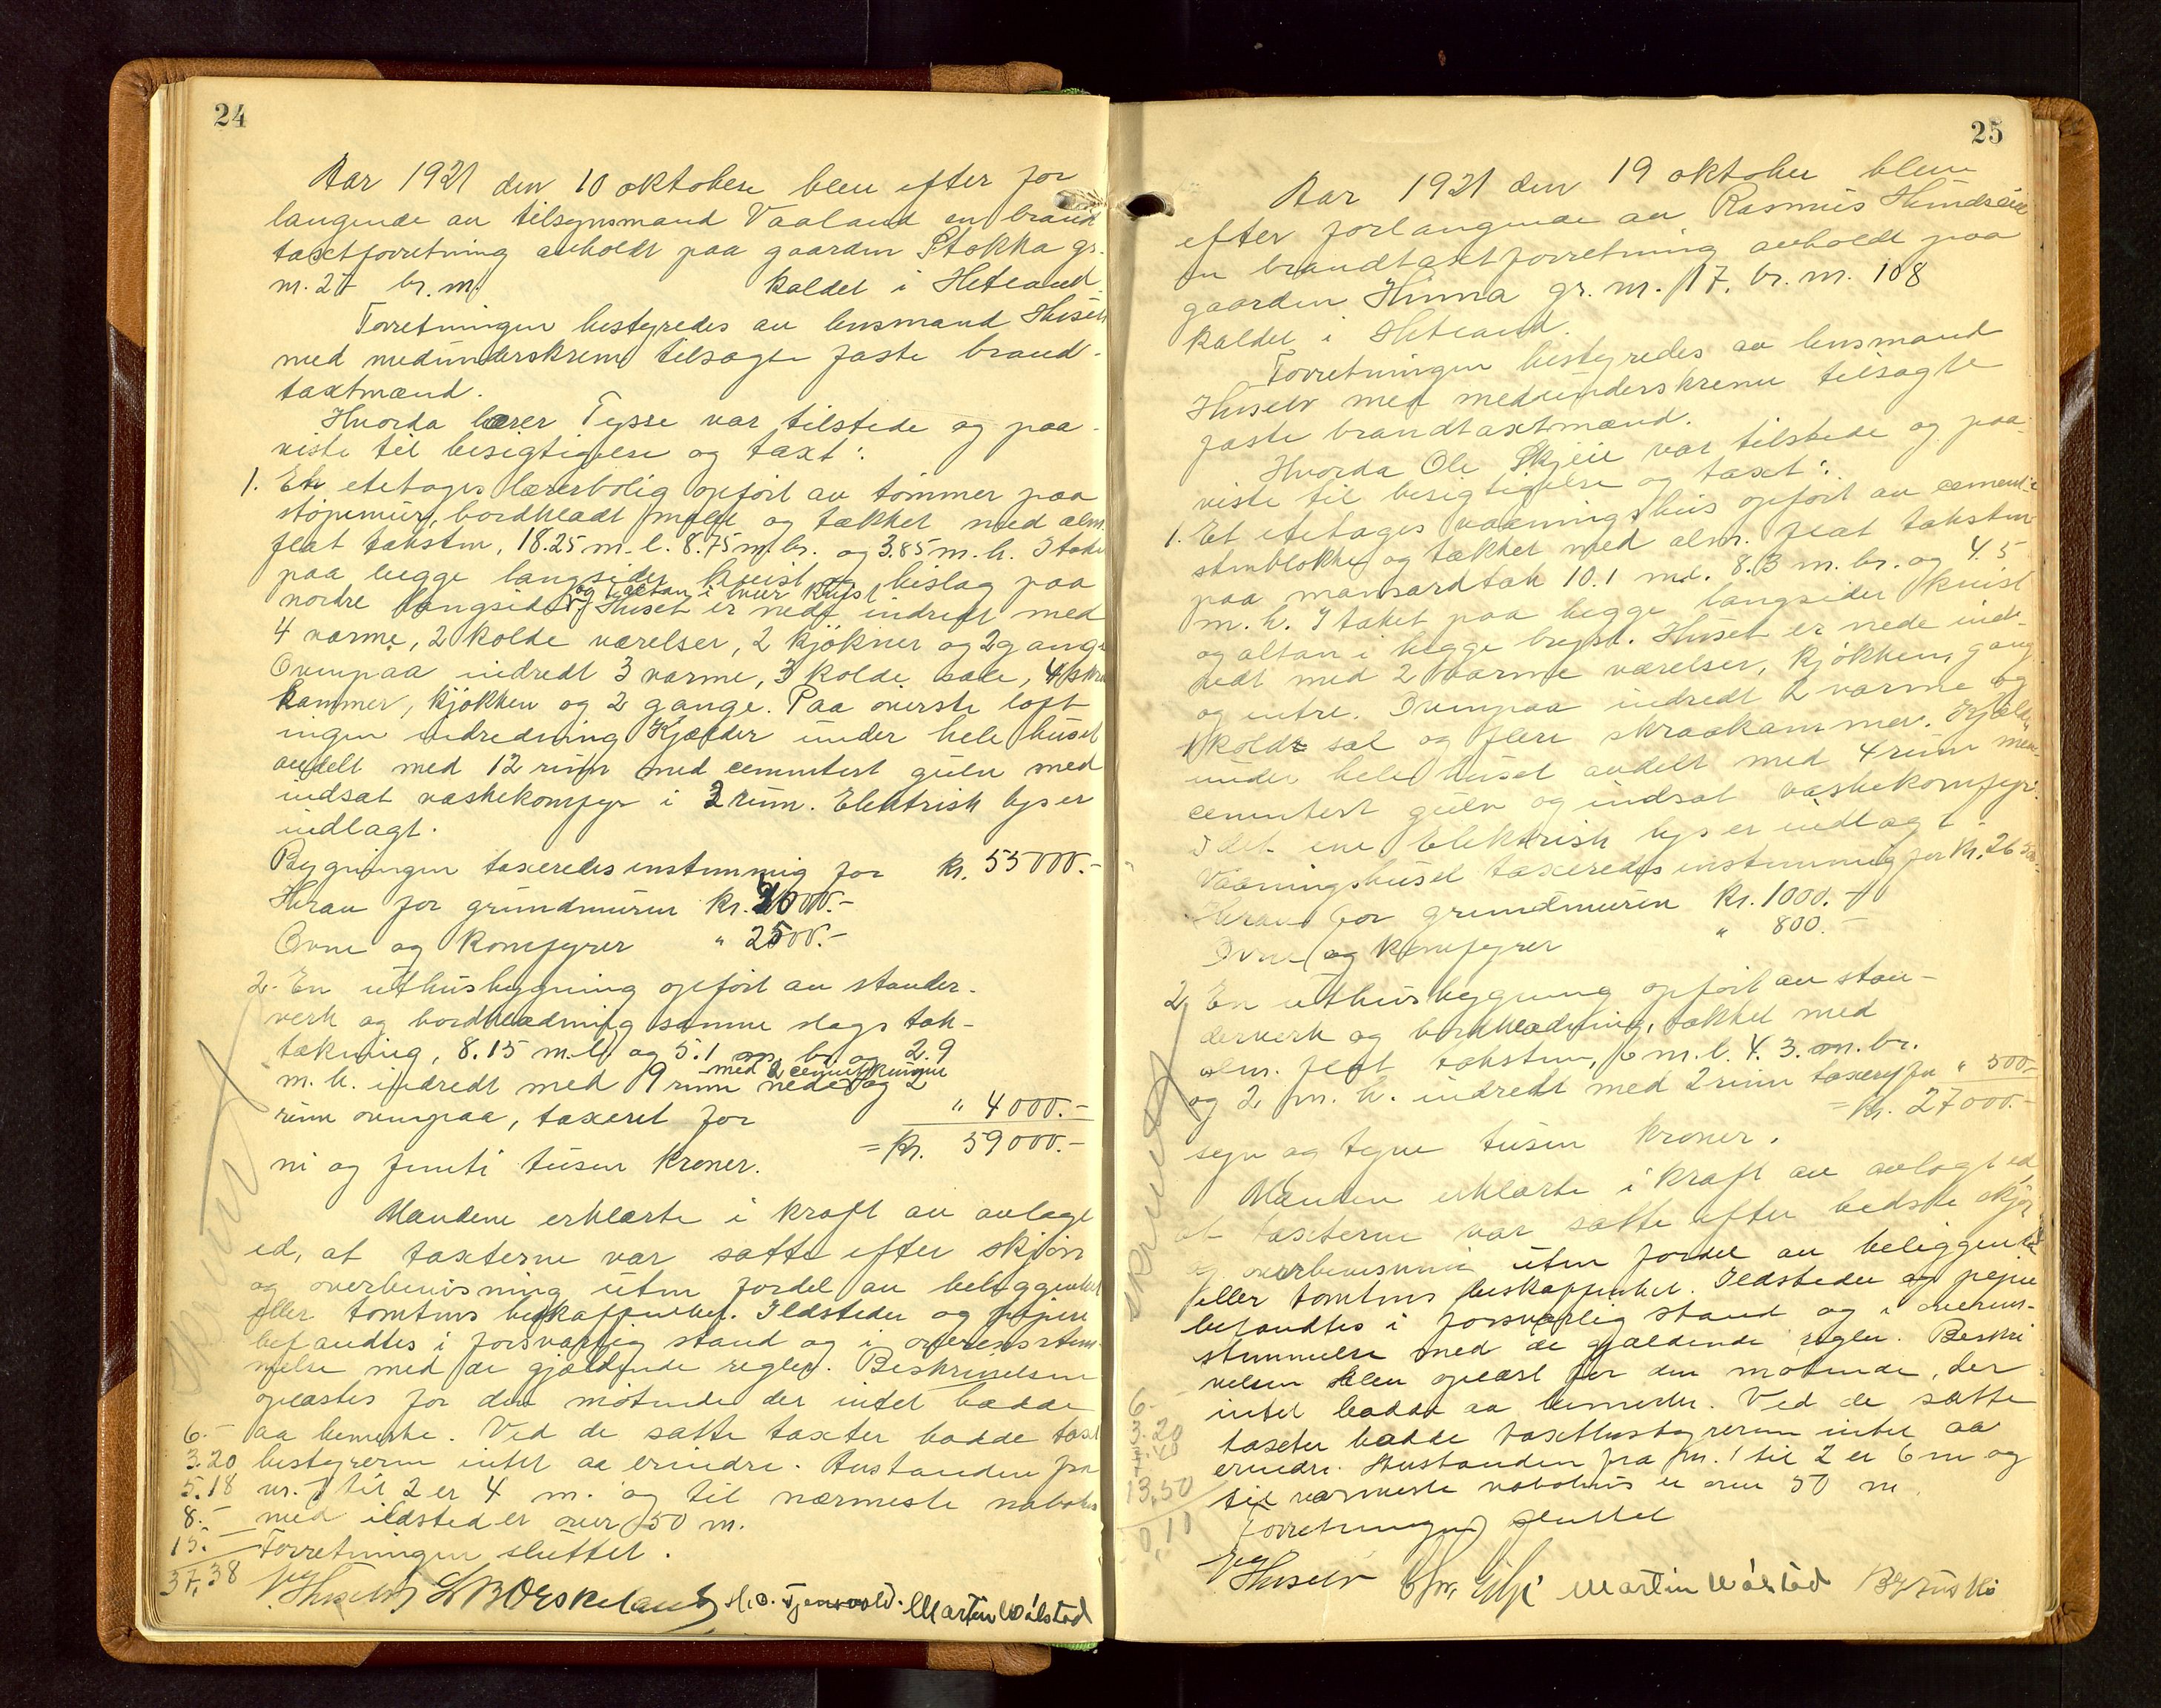 24
Aar 1921 den 10 oktober blev efter for
langende av tilsynsmand Vaaland en brand
taxtforretning avholdt paa gaarden Stokka gr.
nr. 27 br. nr. kaldet i Hetland.
Forretningen bestyredes av lensmand Huseb
med medunderskrevne tilsagte faste brand-
taxtmænd.
Hvorda lærer Tysse var tilstede og paa-
viste til besigtigelse og taxt:
1. Et etetages lærerbolig opført av tømmer paa
støpemur, bordklædt malt og tækket med alm.
flat taksten, 18.25 m. l. 8.75 m. br. og 3.85 m. h. I taket
paa begge langsider kvist og bislag paa
og altan i hver kvist
nordre langside. Huset er nede indredt med
4 varme, 2 kolde værelser, 2 kjøkner og 2 gange
Ovenpaa indredt 3 varme, 3 kolde sale, 4 skraa
kammer, kjøkken og 2 gange. Paa øverste loft
ingen indredning Kjælder under hele huset
avdelt med 12 rum med cementert gulv med
indsat vaskekomfyr i 2 rum. Elektrisk lys er
indlagt.
Bygningen taxeredes enstemmig for kr. 55000.-
Herav for grundmuren kr. 6000.-
Ovne og komfyrer " 2500.-
2. En uthusbygning opført av stander-
verk og bordklædning samme slags tak-
tækning, 8.15 m. l. og 5.1 m. br. og 2.9
med 2 cementkummer
m. h. indredt med 9 rum nede og 2
rum ovenpaa, taxeret for " 4000.-
= kr. 59000.-
ni og femti tusen kroner.
Mændene erklærte i kraft av avlagt
ed, at taxterne var satte efter skjøn
og overbevisning uten fordel av beliggenhet
eller tomtens beskaffenhet. Ildsteder og piper
befandtes i forsvarlig stand og i overensstem-
melse med de gjældende regler. Beskrivelsen
oplæstes for den møtende der intet hadde
6.- aa bemerke. Ved de satte taxter hadde taxt
3.20 bestyreren intet aa erindre. Avstanden fra
5.18 nr. 1 til 2 er 4 m. og til nærmeste nabohus
8.- med ildsted er over 50 m.
15.- Forretningen sluttet.
37,38 Husebø L B Orskeland H. O. Tjensvold. Martin Wålstad
25
Aar 1921 den 19 oktober blev
efter forlangende av Rasmus Hindseie
en brandtaxtforretning avholdt paa
gaarden Hinna gr. nr. 17. br. nr. 108
kaldet i Hetland.
Forretningen bestyredes av lensmand
Husebø med medunderskrevne tilsagte
faste brandtaxtmænd.
Hvorda Ole Skjeie var tilstede og paa-
viste til besigtigelse og taxt:
1. Et etetages vaaningshus opført av cement-
stenblokke og tækket med alm. flat taksten
paa mansardtak 10.1 m. l. 8.3 m. br. og 4.5
m. h. I taket paa begge langsider kvist
og altan i begge bryst. Huset er nede ind-
redt med 2 varme værelser, kjøkken, gang
og entre. Ovenpaa indredt 2 varme og
1 kold sal og flere skraakammer. Kjælder
under hele huset avdelt med 4 rum med
cementert gulv og indsat vaskekomfyr
i det ene Elektrisk lys er indlagt
Vaaningshuset taxeredes enstemmig for kr. 26500.-
Herav for grundmuren kr. 1000.-
Ovne og komfyrer " 800.-
2. En uthusbygning opført av stan-
derverk og bordklædning, tækket med
alm. flat taksten, 6 m. l. 4.3. m. br.
og 2 m. h. indredt med 2 rum taxeres for " 500.-
= kr. 27000.-
syv og tyve tusen kroner.
Mændene erklærte i kraft av avlagt ed
at taxterne var satte efter bedste skjøn
og overbevisning uten fordel av beliggenhet
eller tomtens beskaffenhet. Ildsteder og piper
befandtes i forsvarlig stand og i overens-
stemmelse med de gjældende regler. Beskri
velsen blev oplæst for den møtende, der
6.- intet hadde aa bemerke. Ved de satte
3.20 taxter hadde taxtbestyreren intet aa
erindre. Avstanden fra nr. 1 til 2 er 6 m og
13,50 til nærmeste nabohus er over 50 m.
Forretningen sluttet
Husebø Martin Wålstad